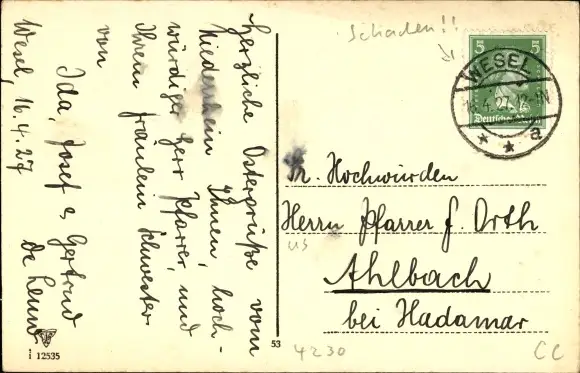 Herzliche Ostergrüße vom
Niederrhein Ihnen, hoch-
würdiger Herr Pfarrer, und
Ihrem Fräulein Schwester
von
Ida, Josef & Gertrud
Wesel, 16.4.27
i 12535
53
Schaden!!
5 5
Deutsches Reich
WESEL
16.4.27.12-
a
Sr. Hochwürden
Herrn Pfarrer J. Orth
us
Ahlbach
bei Hadamar
4230
CC